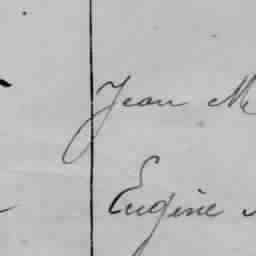 Jean M
Eugène